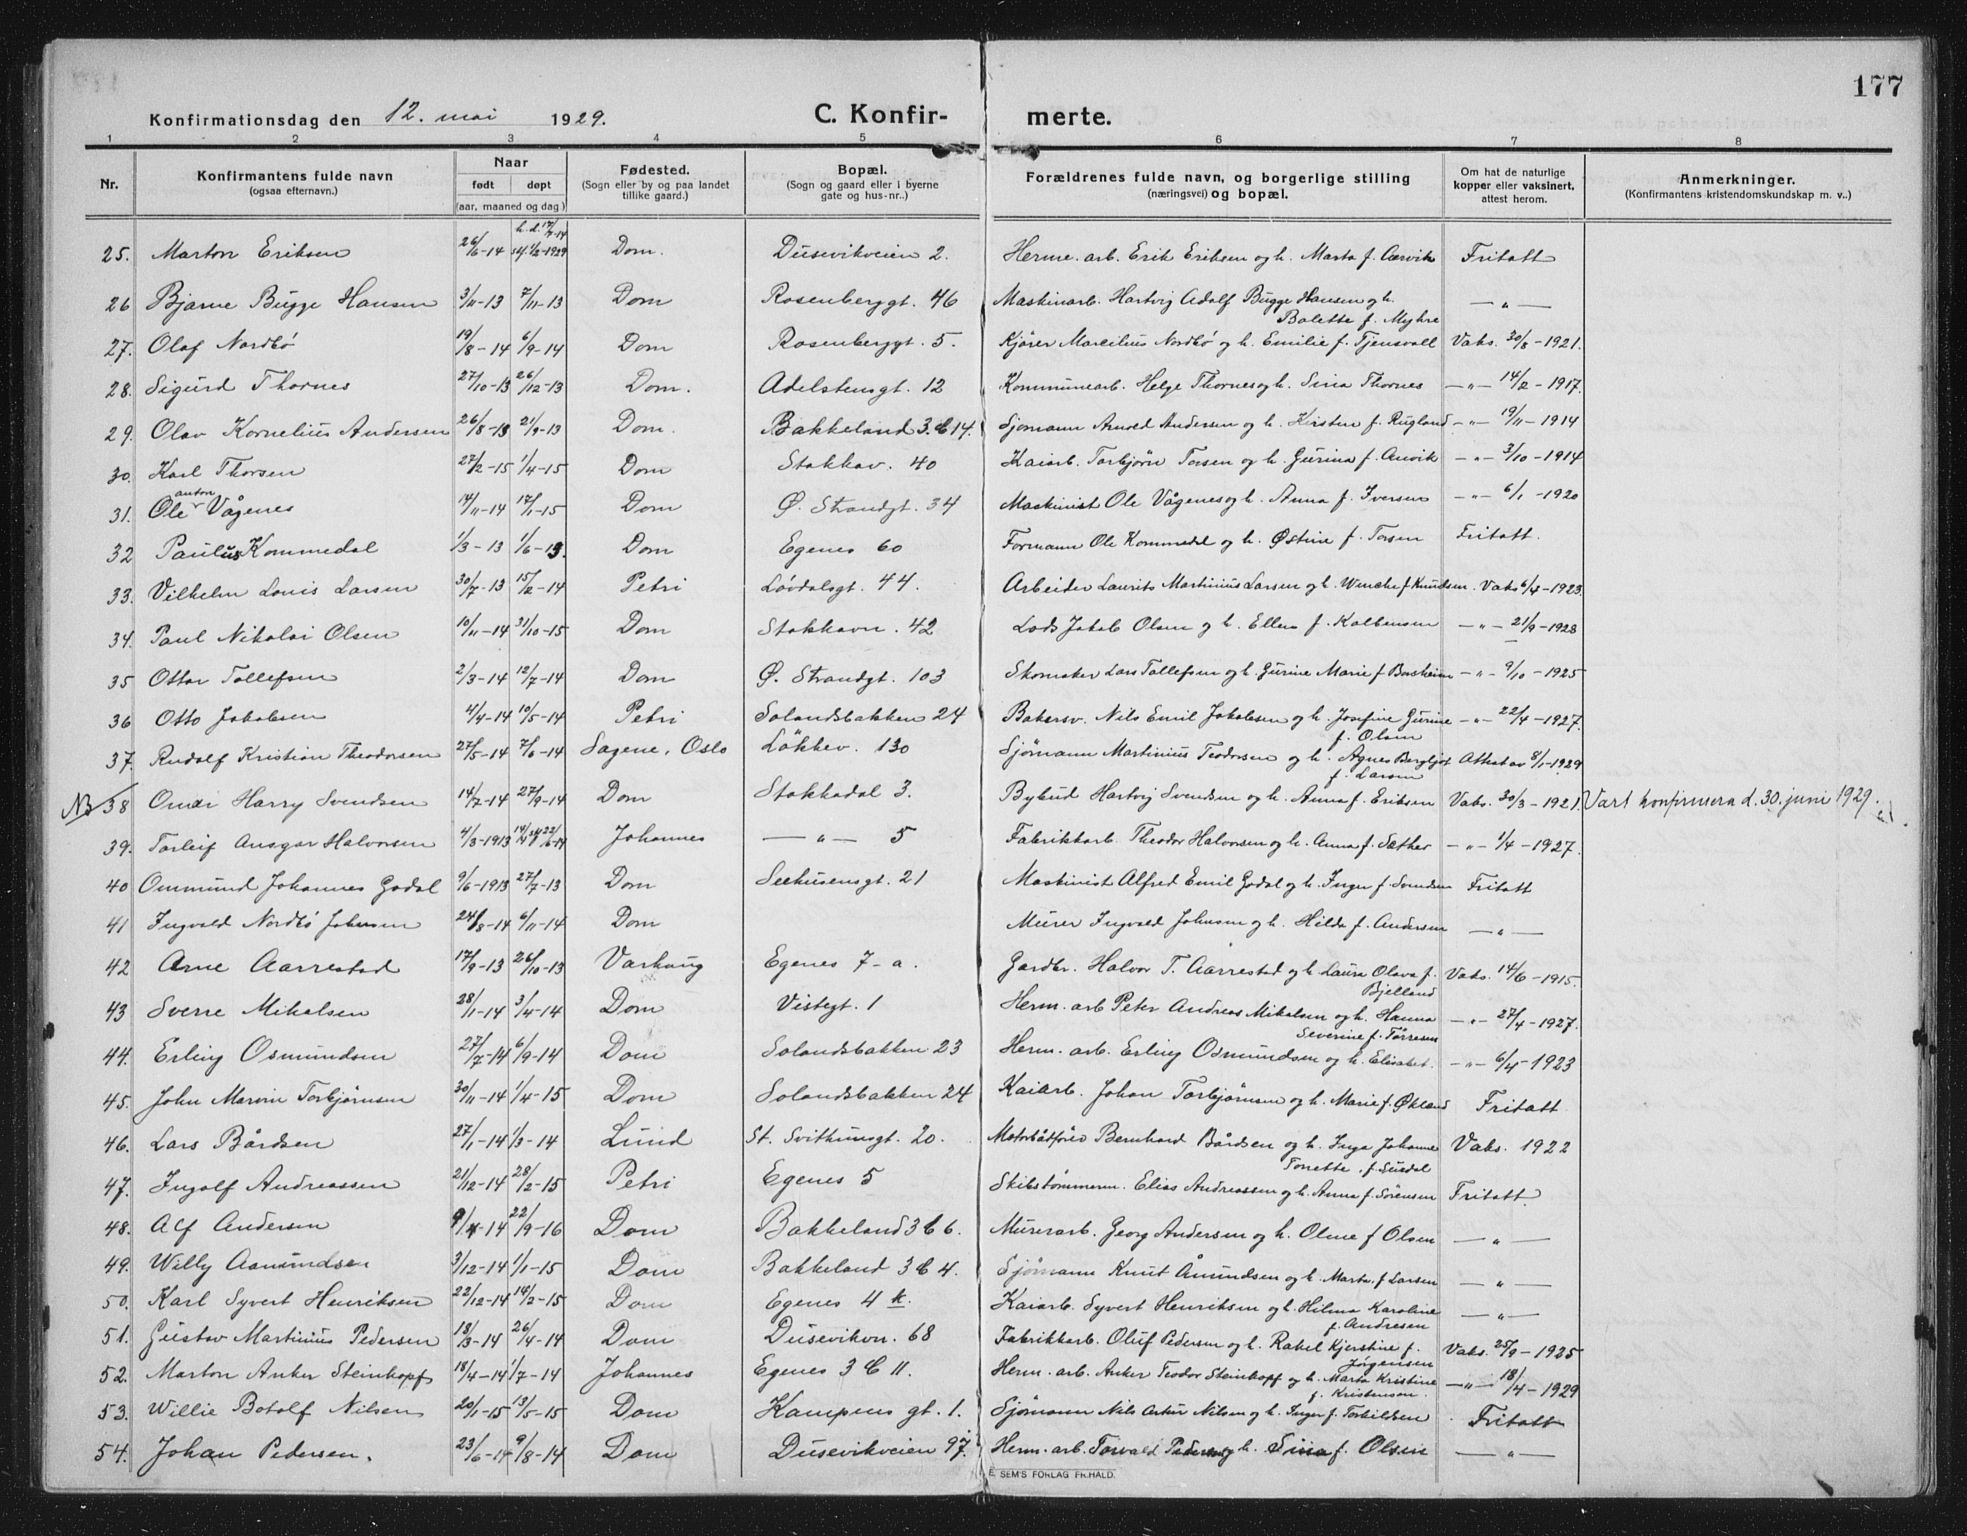 177
Konfirmationsdag den 12. mai 1929. C. Konfirmerte.
1 2 3 4 5 6 7 8
Nr. Konfirmantens fulde navn (ogsaa efternavn.) Naar født døpt (aar, maaned og dag) Fødested. (Sogn eller by og paa landet tillike gaard.) Bopæl. (Sogn og gaard eller i byerne gate og hus-nr..) Forældrenes fulde navn, og borgerlige stilling (næringsvei) og bopæl. Om hat de naturlige kopper eller vaksinert, attest herom. Anmerkninger. (Konfirmantens kristendomskundskap m. v..)
h.d. 17/7-14
25. Marton Eriksen 26/6-14 1/2-1929 Dom. Dusevikveien 2. Herme. arb. Erik Eriksen og h. Marta f. Aarvik Fritatt
26 Bjarne Bugge Hansen 3/11-13 7/11-13 Dom Rosenberggt. 46 Maskinarb. Hartvig Adolf Bugge Hansen og h. Bolette f. Myhre — " —
27. Olaf Nordbö 19/8-14 6/9-14 Dom Rosenberggt. 5. Kjörer Marcelius Nordbö og h. Emilie f. Tjensvoll Vaks. 30/8-1921.
28. Sigurd Thornes 27/10-13 26/12-13 Dom. Adelstensgt. 12 Kommunearb. Helge Thornes og h. Sina Thornes — " — 14/2-1917.
29. Olav Kornelius Andersen 26/8-13 21/9-13 Dom. Bakkeland 3. b 14. Sjömann Arnold Andersen og h. Kirsten f. Rugland — " — 19/11-1914
30. Karl Thorsen 27/2-15 1/4-15 Dom Stokkav. 40 Kaiarb. Torbjörn Torsen og h. Gurina f. Auvik — " — 3/10-1914
31. Ole anton Vågenes 14/11-14 17/1-15 Dom Ø. Strandgt. 34 Maskinist Ole Vågenes og h. Anna f. Iversen — " — 6/1-1920
32 Paulus Kommedal 1/3-13 1/6-13. Dom Egenes 60 Formann Ole Kommedal og h. Østine f. Torsen Fritatt.
33. Vilhelm Louis Larsen 30/7-13 15/2-14 Petri Lövdalsgt. 44. Arbeider Laurits Martinius Larsen og h. Wenche f. Knudsen. Vaks 6/4-1923.
34. Paul Nikolai Olsen 10/11-14 31/10-15 Dom Stokkavn. 42 Lods Jakob Olsen og h. Ellen f. Kolbensen — " — 21/9-1928
35 Ottar Tollefsen 2/3-14 12/7-14 Dom Ø. Strandgt. 103 Skomaker Lars Tollefsen og h. Gurine Marie f. Borsheim — " — 9/10-1925
36 Otto Jakobsen 4/4-14 10/5-14 Petri Solandsbakken 24 Bakersv. Nils Emil Jakobsen og h. Josefine Gurine f. Olsen — " — 22/4-1927.
37. Rudolf Kristian Theodorsen 27/5-14 7/6-14 Sagene, Oslo Løkkev. 130 Sjömann Martinius Teodorsen og h. Agnes Bergljot f. Larsen Attest av 8/1-1929
NB 38 Omar Harry Svendsen 14/7-14 27/9-14 Dom Stokkadal 3. Bybud Hartvig Svendsen og h. Anna f. Eriksen Vaks. 30/3-1921. Vart konfirmera d. 30. juni 1929.
39. Torleif Ansgar Halvorsen 4/3-1913 Johannes — " — 5 Fabrikkarb. Theodor Halvorsen og h. Anna f. Sæther — " — 1/4-1927.
40 Ommund Johannes Godal 9/6-1913 27/7-13 Dom Seehusensgt. 21 Maskinist Alfred Emil Godal og h. Inger f. Svendsen Fritatt
41 Ingvald Nordbö Johnsen 24/8-14 6/11-14 Dom Murer Ingvald Johnsen og h. Hilda f. Andersen — " —
42 Arne Aarrestad 17/9-13 26/10-13 Varhaug Egenes 7-a. Gardbr. Halvor T. Aarrestad og h. Laura Olava f. Bjelland Vaks. 14/6-1915.
43 Sverre Mikalsen 28/1-14 3/4-14 Dom Vistegt. 1 Herm. arb Peter Andreas Mikalsen og h. Hanna Severine f. Tørresen — " — 27/4-1927.
44. Erling Osmundsen 27/7-14 6/9-14 Dom Solandsbakken 23 Herm. arb. Erling Osmundsen og h. Elisabet. — " — 6/4-1923
45. John Marvin Torbjörnsen 30/11-14 1/4-15 Dom Solandsbakken 24 Kaiarb. Johan Torbjörnsen og h. Marie f. Økland Fritatt
46. Lars Bårdsen 27/1-14 1/3-14 Lund St. Svithunsgt. 20. Motorbåtförer Bernhard Bårdsen og h. Inga Johanne Tonette f. Susdal Vaks. 1922
47. Ingolf Andreassen 21/12-14 28/2-15 Petri Egenes 5 Skibstömmerm. Elias Andreassen og h. Anna f. Sörensen Fritatt
48. Alf Andersen 9/4-14 22/9-16 Dom Bakkeland 3 b 6. Murerarb. Georg Andersen og h. Oline f Olsen — " —
49. Willy Aamundsen 3/12-14 1/1-15 Dom Bakkeland 3 b 4. Sjömann Knut Åmundsen og h. Marta f Larsen — " —
50. Karl Syvert Henriksen 22/12-14 14/2-15 Dom Egenes 4 k. Kaiarb. Syvert Henriksen og h. Hilma Karoline f. Andresen — " —
51. Gustav Martinius Pedersen 18/3-14 26/4-14 Dom Dusevikvn. 68 Fabrikkarb. Oluf Pedersen og h. Rakel Kjerstine f. Jørgensen Vaks. 25/9-1925
52. Marton Anker Steinkopf 18/4-14 1/7-14 Johannes Egenes 3 b 11. Herm. arb. Anker Teodor Steinkopf og h. Marta Kristine f. Kristensen. — " — 18/4-1929
53. Willie Botolf Nilsen 20/1-15 13/5-15 Dom Kampens gt. 1. Sjömann Nils Artur Nilsen og h. Inger f. Torkildsen Fritatt
54. Johan Pedersen. 23/6-14 9/8-14 Dom Dusevikveien 97. Herm. arb. Torvald Pedersen og h. Sina f. Olsen — " —
E. SEM'S FORLAG FR.HALD.